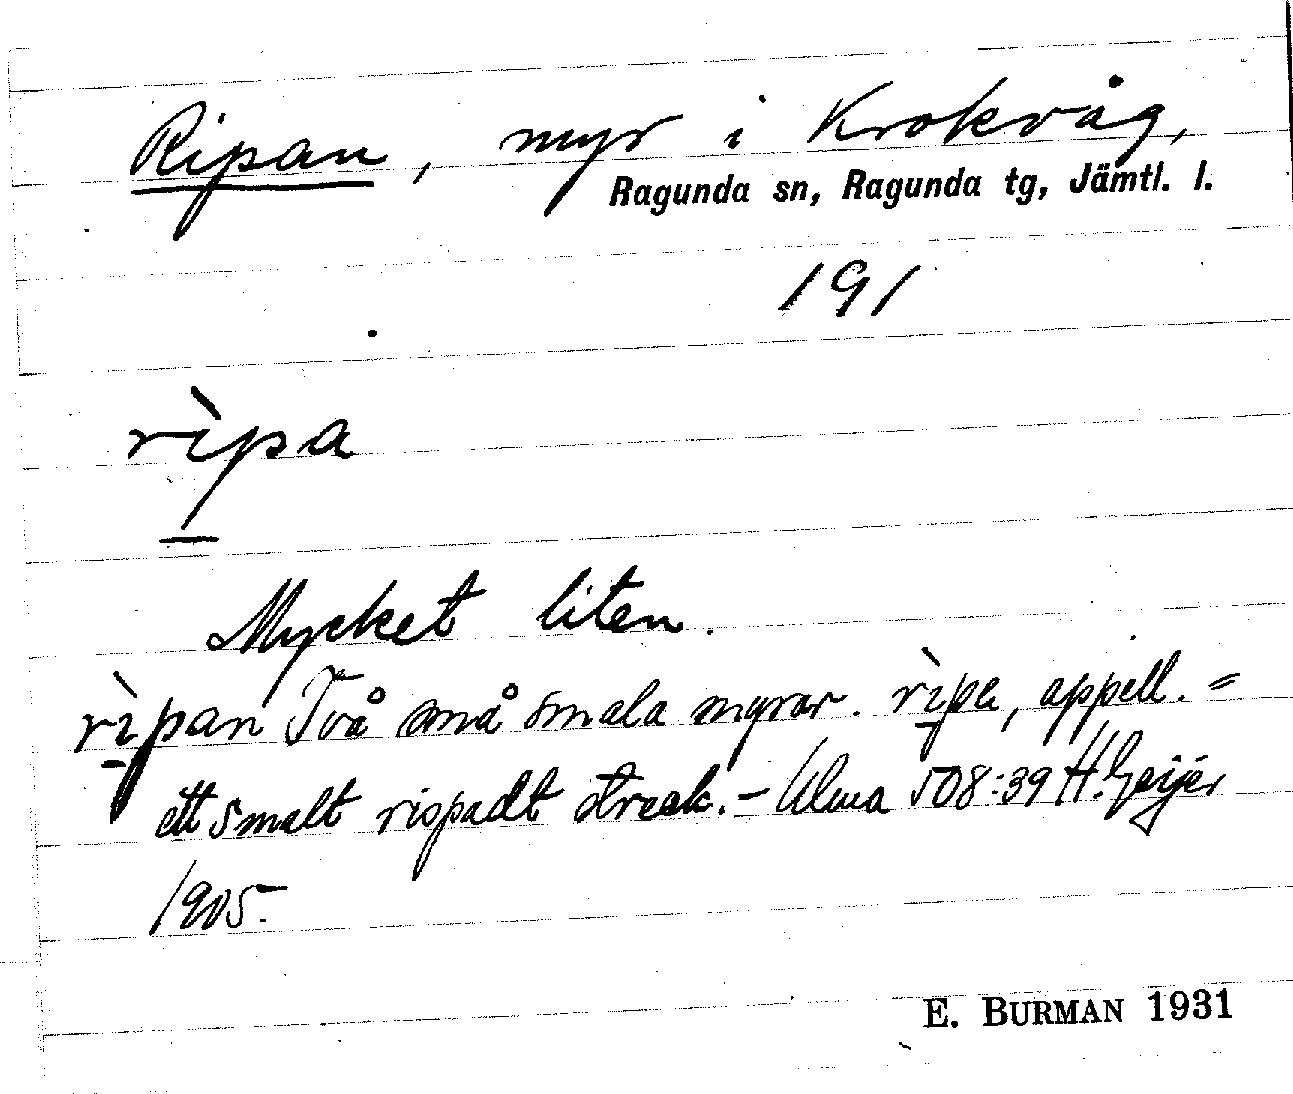 Ripan, myr i Krokvåg,
Ragunda sn, Ragunda tg, Jämtl. l.
191
rìpa
Mycket liten.
rìpan Två små smala myrar. rìpa, appell. =
ett smalt rispadt streck. – Ulma 508:39 H. Geijer
1905.
E. BURMAN 1931